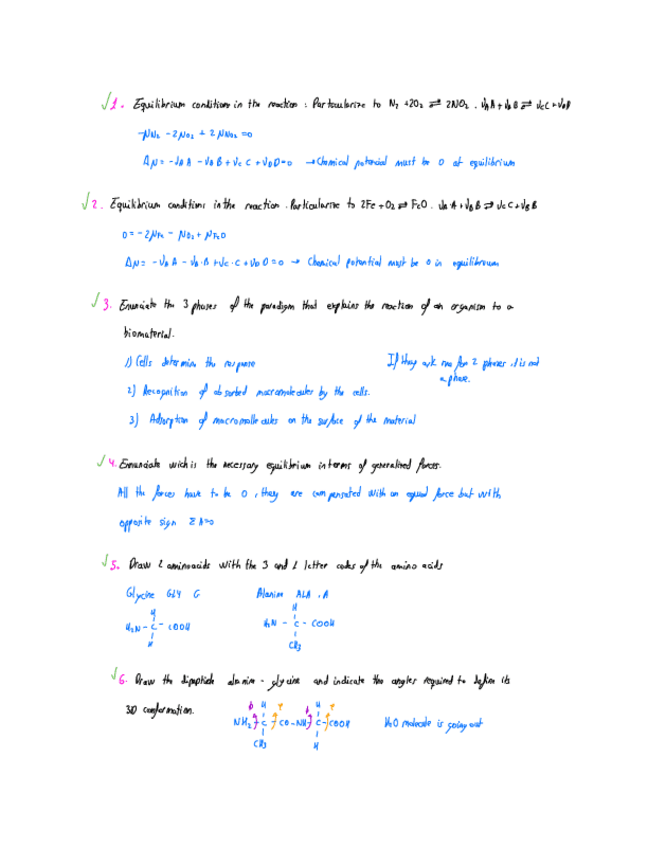 √1. Equilibrium conditions in the reaction : Particularize to N₂ + 2O₂ ⇌ 2NO₂ . νA A + νB B ⇌ νC C + νD D
-μN₂ - 2μO₂ + 2μNO₂ = 0
Δμ = -νA A - νB B + νC C + νD D = 0 → Chemical potencial must be 0 at equilibrium
√2. Equilibrium conditions in the reaction . Particularize to 2Fe + O₂ ⇌ FeO . νA·A + νB B ⇌ νC C + νB B
0 = -2μFe - μO₂ + μFeO
Δμ = -νA A - νB·B + νC·C + νD D = 0 → Chemical potential must be 0 in equilibrium
√3. Enunciate the 3 phases of the paradigm that explains the reaction of an organism to a
biomaterial.
1) Cells determine the response
If they ask me for 2 phases, 1 is not
a phase.
2) Recognition of absorbed macromolecules by the cells.
3) Adsorption of macromolecules on the surface of the material
√4. Ennunciate wich is the necessary equilibrium in terms of generalised forces.
All the forces have to be 0, they are compensated with an equal force but with
opposite sign Σ A=0
√5. Draw 2 aminoacids with the 3 and 1 letter codes of the amino acids
Glycine GLY G
Alanine ALA . A
H
H₂N - C - COOH
H
H
H₂N - C - COOH
CH₃
√6. Draw the dipeptide alanine - glycine and indicate the angles required to define its
3D conformation.
H H
NH₂ C - CO - NH C - COOH
CH₃ H
H₂O molecule is going out